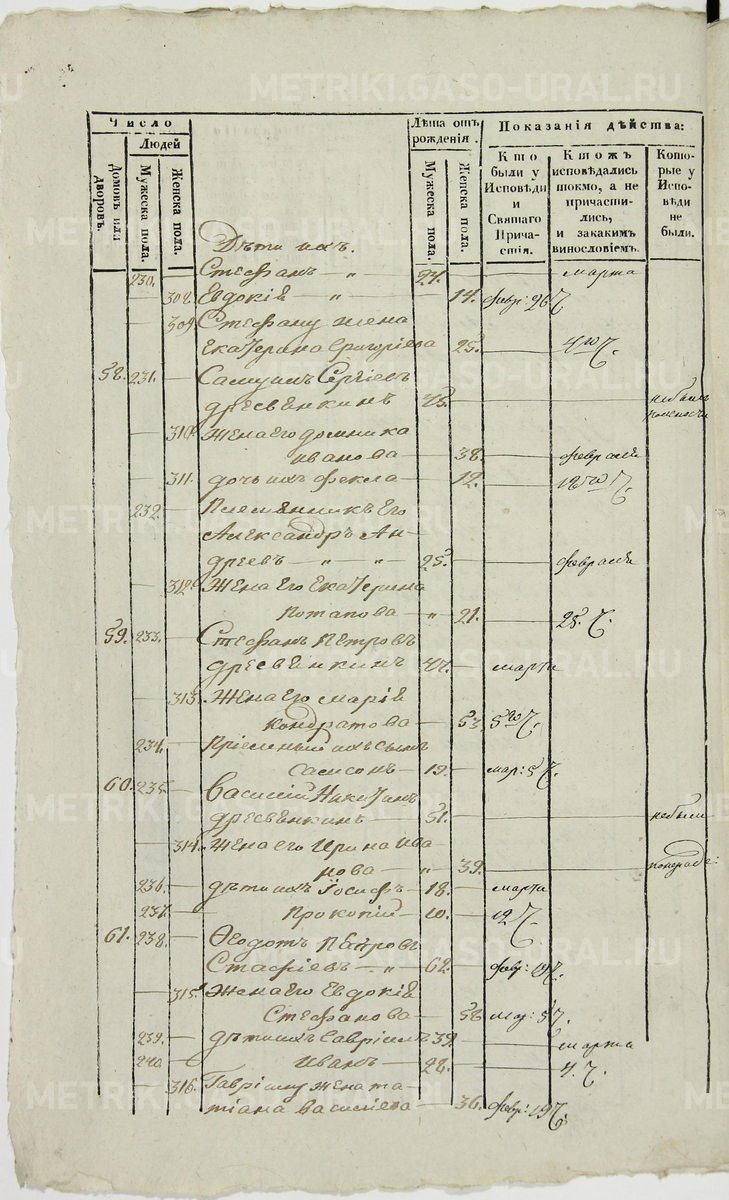 METRIKI.GASO-URAL.RU
Число
Людей
Домовъ или дворовъ.
Мужеска пола.
Женска пола.
Лѣта отъ рожденія.
Мужеска пола.
Женска пола.
Показанія дѣйства:
Кто были у Исповѣди и Святаго Причастія.
Ктожъ исповѣдались токмо, а не причастились, и закакимъ винословіемъ.
Которые у Исповѣди не были.
Дѣти ихъ.
230. Стефанъ — „ — 27. марта
308. Евдокія „ — 14. февр: 26
309. Стефану жена
Екатерина Григоріева 25. 4го
58. 231. Самуилъ Сергіевъ
Древенкинъ 45.
310. жена его Домника
Иванова — 38. февраля
311. дочь ихъ Фекла — 12.
232. Племянникъ его
Александръ Ан-
дреевъ — „ — „ — 25. февраля
312. Жена его Екатерина
Потапова — „ 21. 25.
59. 233. Стефанъ Петровъ
Древенкинъ 47. марта
313. Жена его Марія
Кондратова — 53. 5го
234. Пріемный ихъ сынъ
Самсонъ — 19. мар: 5
60. 235. Василій Никитинъ
Древенкинъ — 51. небыли
314. Жена его Ирина Ива
нова — „ 39.
236. дѣти ихъ Іосифъ — 18. марта
237. Прокопій — 10. 12
61. 238. Ѳеодотъ Петровъ
Стафіевъ — „ — 62. февр: 19
315. Жена его Евдокія
Стефанова — 58 мар: 5
239. дѣти ихъ Гавріилъ 39. марта
240 Иванъ — 28. 4.
316. Гавріилу жена Та-
тіана Василіева — 36. февр: 19